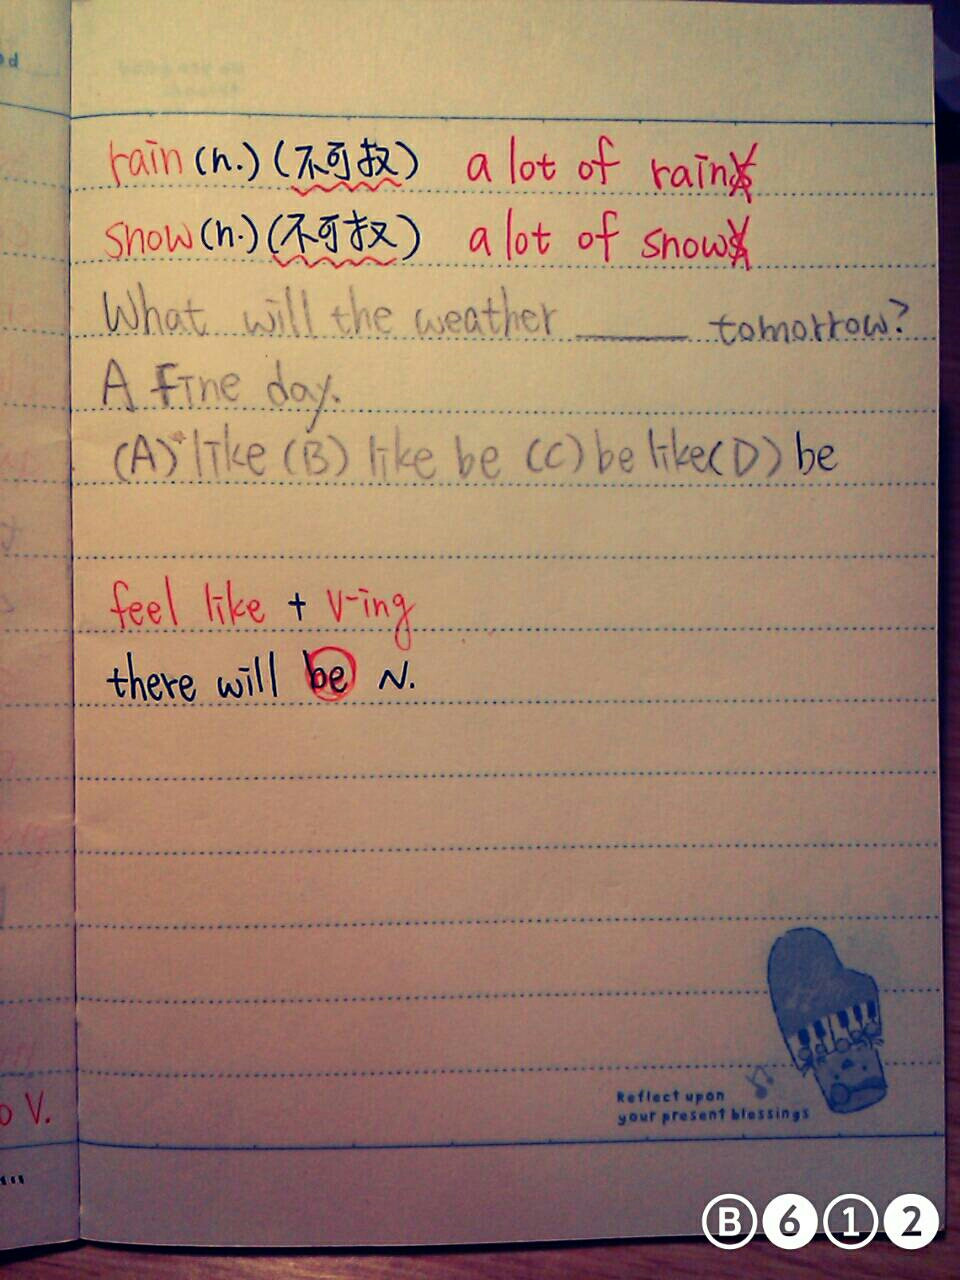 rain (n.) (不可叔) a lot of rains
snow (n.) (不可叔) a lot of snows
What will the weather ____ tomorrow?
A fine day.
(A) like (B) like be (C) be like (D) be
feel like + V-ing
there will be N.
o V.
Reflect upon
your present blessings
B612